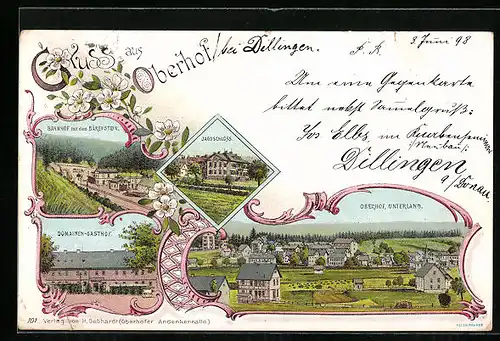 Gruss aus Oberhof / bei Dillingen.
F. K. 3 Juni 98
Um eine Gegenkarte
bittet nebst Sammelgruß:
Jos Elbs, im
Dillingen
a/Donau
BAHNHOF MIT DEM BÄRENSTEIN.
JAGDSCHLOSS.
OBERHOF, UNTERLAND.
DOMAINEN-GASTHOF.
101 Verlag von H. Gebhardt (Oberhofer Andenkenhalle)